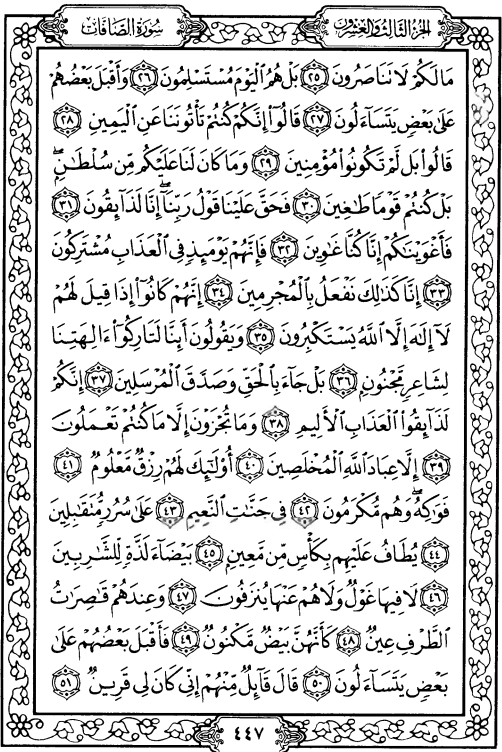 سُورَةُ الصَّافَّاتِ
الجُزْءُ الثَّالِثُ وَالعِشْرُونَ
مَا لَكُمْ لَا تَنَاصَرُونَ ٢٥ بَلْ هُمُ الْيَوْمَ مُسْتَسْلِمُونَ ٢٦ وَأَقْبَلَ بَعْضُهُمْ
عَلَىٰ بَعْضٍ يَتَسَاءَلُونَ ٢٧ قَالُوا إِنَّكُمْ كُنتُمْ تَأْتُونَنَا عَنِ الْيَمِينِ ٢٨
قَالُوا بَل لَّمْ تَكُونُوا مُؤْمِنِينَ ٢٩ وَمَا كَانَ لَنَا عَلَيْكُم مِّن سُلْطَٰنٍۖ
بَلْ كُنتُمْ قَوْمًا طَٰغِينَ ٣٠ فَحَقَّ عَلَيْنَا قَوْلُ رَبِّنَاۖ إِنَّا لَذَائِقُونَ ٣١
فَأَغْوَيْنَٰكُمْ إِنَّا كُنَّا غَٰوِينَ ٣٢ فَإِنَّهُمْ يَوْمَئِذٍ فِي الْعَذَابِ مُشْتَرِكُونَ
٣٣ إِنَّا كَذَٰلِكَ نَفْعَلُ بِالْمُجْرِمِينَ ٣٤ إِنَّهُمْ كَانُوا إِذَا قِيلَ لَهُمْ
لَا إِلَٰهَ إِلَّا اللَّهُ يَسْتَكْبِرُونَ ٣٥ وَيَقُولُونَ أَئِنَّا لَتَارِكُوا ءَالِهَتِنَا
لِشَاعِرٍ مَّجْنُونٍ ٣٦ بَلْ جَاءَ بِالْحَقِّ وَصَدَّقَ الْمُرْسَلِينَ ٣٧ إِنَّكُمْ
لَذَائِقُوا الْعَذَابِ الْأَلِيمِ ٣٨ وَمَا تُجْزَوْنَ إِلَّا مَا كُنتُمْ تَعْمَلُونَ
٣٩ إِلَّا عِبَادَ اللَّهِ الْمُخْلَصِينَ ٤٠ أُولَٰئِكَ لَهُمْ رِزْقٌ مَّعْلُومٌ ٤١
فَوَٰكِهُۖ وَهُم مُّكْرَمُونَ ٤٢ فِي جَنَّٰتِ النَّعِيمِ ٤٣ عَلَىٰ سُرُرٍ مُّتَقَٰبِلِينَ
٤٤ يُطَافُ عَلَيْهِم بِكَأْسٍ مِّن مَّعِينٍ ٤٥ بَيْضَاءَ لَذَّةٍ لِّلشَّٰرِبِينَ
٤٦ لَا فِيهَا غَوْلٌ وَلَا هُمْ عَنْهَا يُنزَفُونَ ٤٧ وَعِندَهُمْ قَٰصِرَٰتُ
الطَّرْفِ عِينٌ ٤٨ كَأَنَّهُنَّ بَيْضٌ مَّكْنُونٌ ٤٩ فَأَقْبَلَ بَعْضُهُمْ عَلَىٰ
بَعْضٍ يَتَسَاءَلُونَ ٥٠ قَالَ قَائِلٌ مِّنْهُمْ إِنِّي كَانَ لِي قَرِينٌ ٥١
٤٤٧